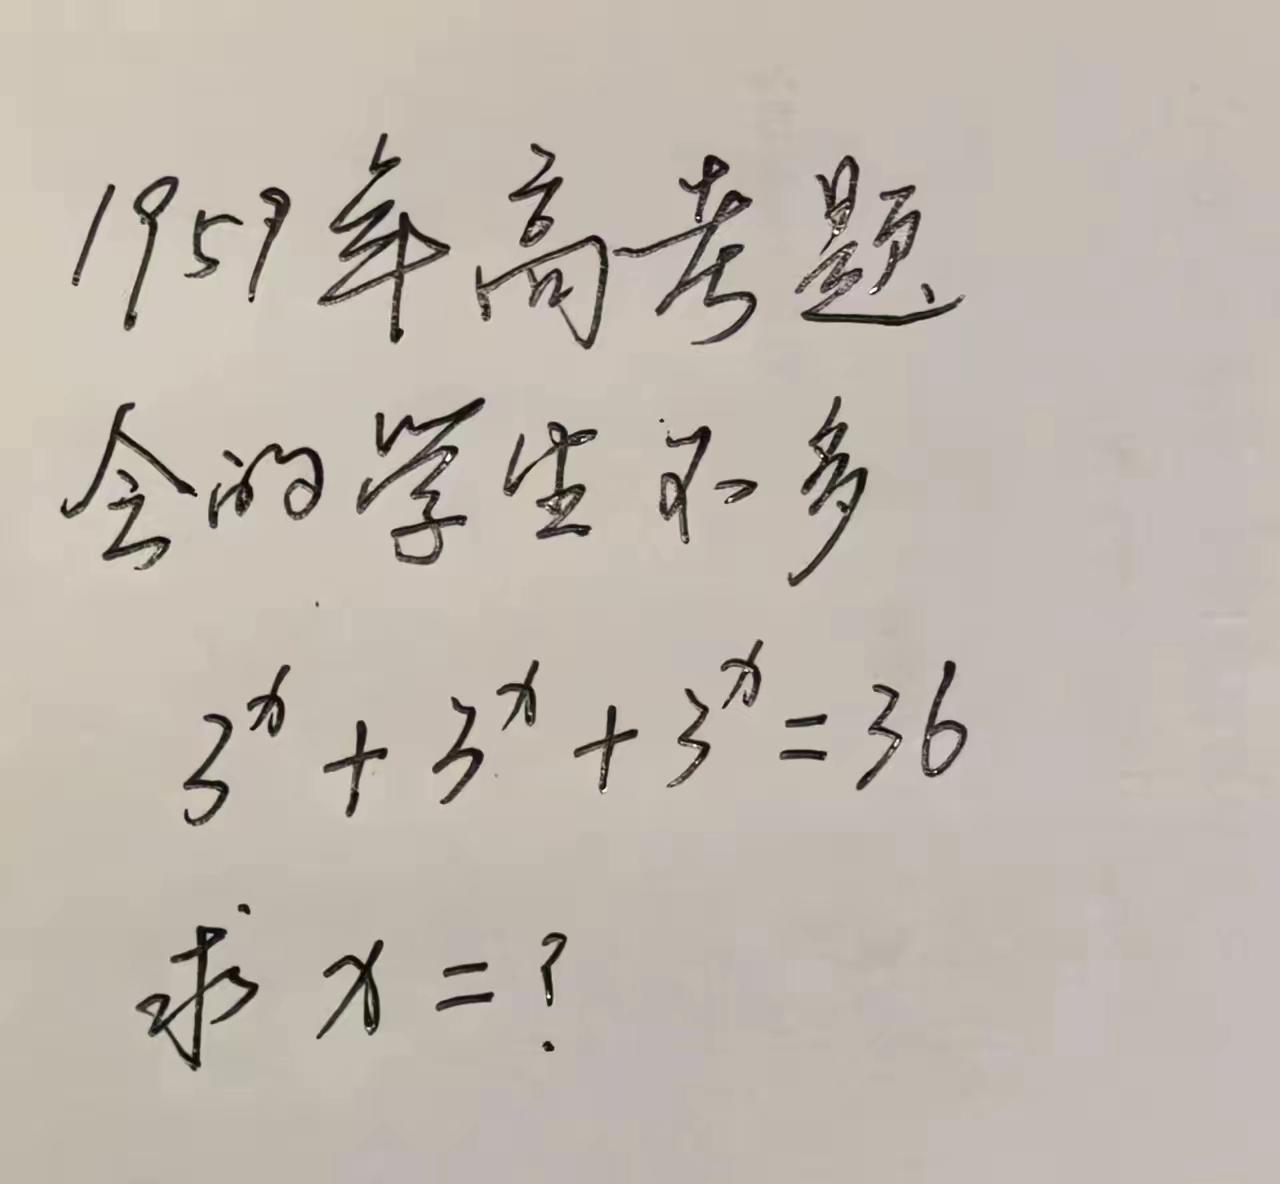 1959年高考题
会的学生不多
3ˣ+3ˣ+3ˣ=36
求x=?